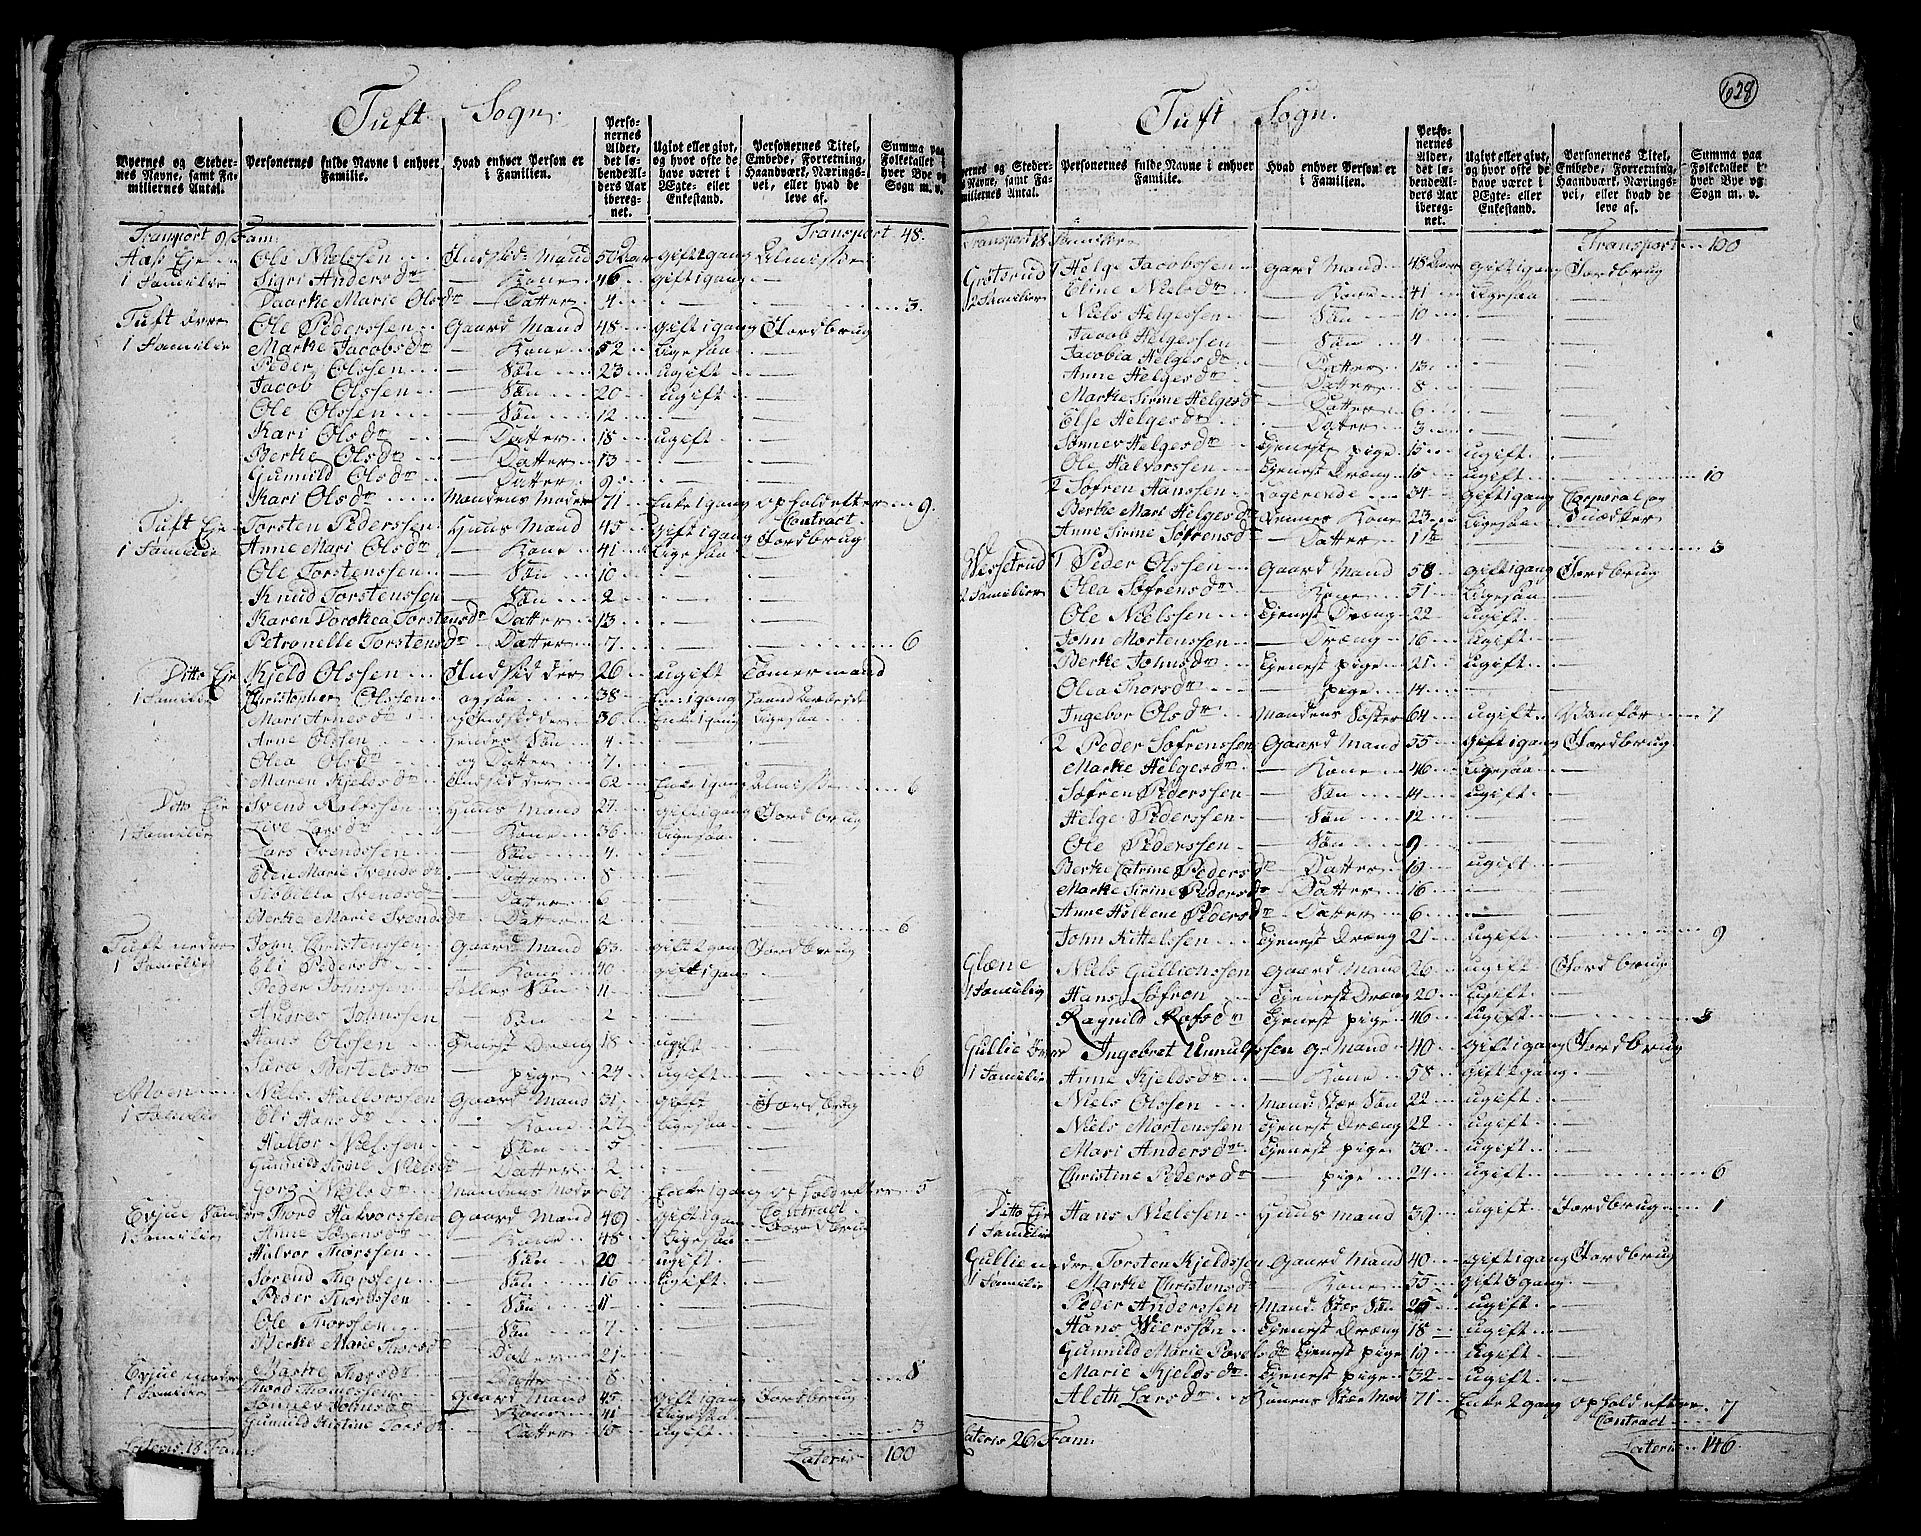 Tuft Sogn.
Byernes og Stedernes Navne, samt Familiernes Antal. | Personernes fulde Navne i enhver Familie. | Hvad enhver Person er i Familien. | Personernes Alder, det løbende Alders Aar iberegnet. | Ugivt eller givt, og hvor ofte de have været i Ægte- eller Enkestand. | Personernes Titel, Embede, Forretning, Haandværk, Næringsvei, eller hvad de leve af. | Summa paa Folketallet i hver Bye og Sogn m. v.
Transport 9 Fam: Transport 48.
Ole Nielssen Indsid: Mand 50 Aar gift 1 gang
1 Familie Sigri Andersdtr Kone 46 gift 1 gang
Daarthe Marie Olsdtr Datter 4 3.
Tuft øvre Ole Pederssen Gaard Mand 48 gift 1 gang Jordbrug
1 Familie Marthe Jacobsdtr Kone 52 Ligesaa
Peder Olssen Søn 23 ugift
Jacob Olssen Søn 20 ugift
Ole Olssen Søn 12
Kari Olsdtr Datter 18 ugift
Berthe Olsdtr Datter 13
Gunnild Olsdtr Datter 9
Kari Olsdtr Mandens Moder 71 Enke 1 gang ophold efter Contract 9.
Tuft Eje Torsten Pederssen Huus Mand 45 Gift 1 gang Jordbrug
1 Familie Anne Mari Olsdtr Kone 41 Ligesaa
Ole Torstenssen Søn 10
Knud Torstenssen Søn 2
Karen Dorothea Torstensdtr Datter 13
Petronelle Torstensdtr Datter 7 6
Ditto Eje Kjeld Olssen Indsidder 26 ugift Tømermand
1 Familie Christopher Olssen 38
Mari Arnesdtr 36 Enke 1 gang Ligesaa
Arne Olssen hendes Søn 4
Olea Olsdtr og Datter 7
Maren Kjeldsdtr Indsidder 62 Enke 1 gang 6
Ditto Eje Svend Huus Mand 27 gift 1 gang Jordbrug
1 Familie Live Larsdtr Kone 36 Ligesaa
Lars Svendssen Søn 4
Elen Marie Svendsdtr Datter 8
Sibilla Svendsdtr Datter 6
Berthe Marie Svendsdtr Datter 2 6
Tuft nedre John Christenssen Gaard Mand 63 gift 2 gang Jordbrug
1 Familie Eli Pedersdtr Kone 40 gift 1 gang
Peder Johnssen Fælles Søn 11
Andres Johnssen Søn 2
Hans Olssen Tjenest Dræng 18 ugift
Sara Bertelsdtr pige 24 ugift 6
Moen Niels Hallorssen Gaard Mand 31 Jordbrug
1 Familie Eli Hansdtr Kone 27 Ligesaa
Hallor Nielssen Søn 5
Gunnild Sirine Nielsdtr Datter 2
Nielsdtr Mandens Moder 67 Enke 1 gang ophold efter Contract 5
Evjue Thord Halvorssen Gaard Mand 49 gift 1 gang Jordbrug
1 Familie Anne Kone 48 Ligesaa
Halvor Thorssen Søn 20 ugift
Sørend Thorssen Søn 16 Ugift
Peder Thordssen Søn 11
Ole Thorssen Søn 7
Berthe Marie Thorsdtr Datter 21
Marthe Thorsdtr Datter 8 8
Evjue nedre Thord Thomessen Gaard Mand 45 gift 1 gang Jordbrug
1 Familie Sønnev Johnsdtr Kone 41 Ligesaa
Gunnild Kistine Torsdtr Datter 10 Ugift 3
Lateris 18 Fam: Lateris 100
628
Tuft Sogn.
Byernes og Stedernes Navne, samt Familiernes Antal. | Personernes fulde Navne i enhver Familie. | Hvad enhver Person er i Familien. | Personernes Alder, det løbende Alders Aar iberegnet. | Ugivt eller givt, og hvor ofte de have været i Ægte- eller Enkestand. | Personernes Titel, Embede, Forretning, Haandværk, Næringsvei, eller hvad de leve af. | Summa paa Folketallet i hver Bye og Sogn m. v.
Transport 18 Familier Transport 100
Grøtsrud 1 Helge Jacobssen Gaard Mand 48 Aar gift 1 gang Jordbrug
2 Familier Eline Nielsdtr Kone 41 Ligesaa
Niels Helgessen Søn 10
Jacob Helgessen Søn 4
Jacobia Helgesdtr Datter 13
Anne Helgesdtr Datter 8
Marthe Sirine Helgesdtr Datter 6
Else Helgesdtr Datter 3
Sønnev Helgesdtr Tjeneste pige 15 ugift
Ole Halvorssen Tjenest Dræng 15 ugift 10
2 Søfren Hanssen Logerende 34 gift 1 gang Corporal og Snædker
Berthe Mari Helgesdtr Dennes Kone 23 Ligesaa
Anne Sirine Søfrensdtr Datter 1 3
Wessetrud 1 Peder Olssen Gaard Mand 58 gift 1 gang Jordbrug
2 Familier Olea Søfrensdtr Kone 51 Ligesaa
Ole Nielssen Tjenest Dræng 22 ugift
John Mortenssen Dræng 16 ugift
Berthe Johnsdtr Tjenest pige 21 ugift
Olea Thorsdtr pige 14
Ingebor Olsdtr Mandens Søster 64 ugift Vanfør 7
2 Peder Søfrenssen Gaard Mand 55 gift 1 gang Jordbrug
Marthe Helgesdtr Kone 46 Ligesaa
Søfren Pederssen Søn 14 ugift
Helge Pederssen Søn 12
Ole Pederssen Søn 9
Berthe Catrine Pedersdtr Datter 19 ugift
Marthe Sirine Pedersdtr Datter 16
Anne Hellene Pedersdtr Datter 6
John Kittelssen Tjenest Dræng 21 ugift 9
Glæne Niels Gullichssen Gaard Mand 26 ugift Jordbrug
1 Familie Hans Søfren Tjenest Dræng 20 Ugift
Ragnild Rolfsdtr Tjenest pige 46 ugift 3
Gullie Ingebret G: Mand 40 Gift 1 gang Jordbrug
1 Familie Anne Kjeldsdtr Kone 58 gift 2 gang
Niels Olssen Mand: Stær Søn 22 ugift
Niels Mortenssen Tjenest Dræng 22 ugift
Mari Andersdtr Tjenest pige 30 ugift
Christine Pedersdtr pige 24 ugift 6
Ditto Eje Hans Nielssen Huusmand 39 ugift Jordbrug 1
1 Familie
Gullie nedre Torsten Kjeldssen Gaard Mand 40 gift 1 gang Jordbrug
1 Familie Marthe Christensdtr Kone 55 gift 3 gang
Peder Anderssen Mand: Stær Søn 25 ugift
Hans Tjenest Dræng 18 ugift
Gunnild Marie Povelsdtr Tjenest pige 19 ugift
Marie Kjeldsdtr Tjenest pige 32 ugift
Aleth Larsdtr Konens Stær Mod: 71 Enke 2 gang ophold efter Contract 7
Lateris 26 Fam: Lateris 146.